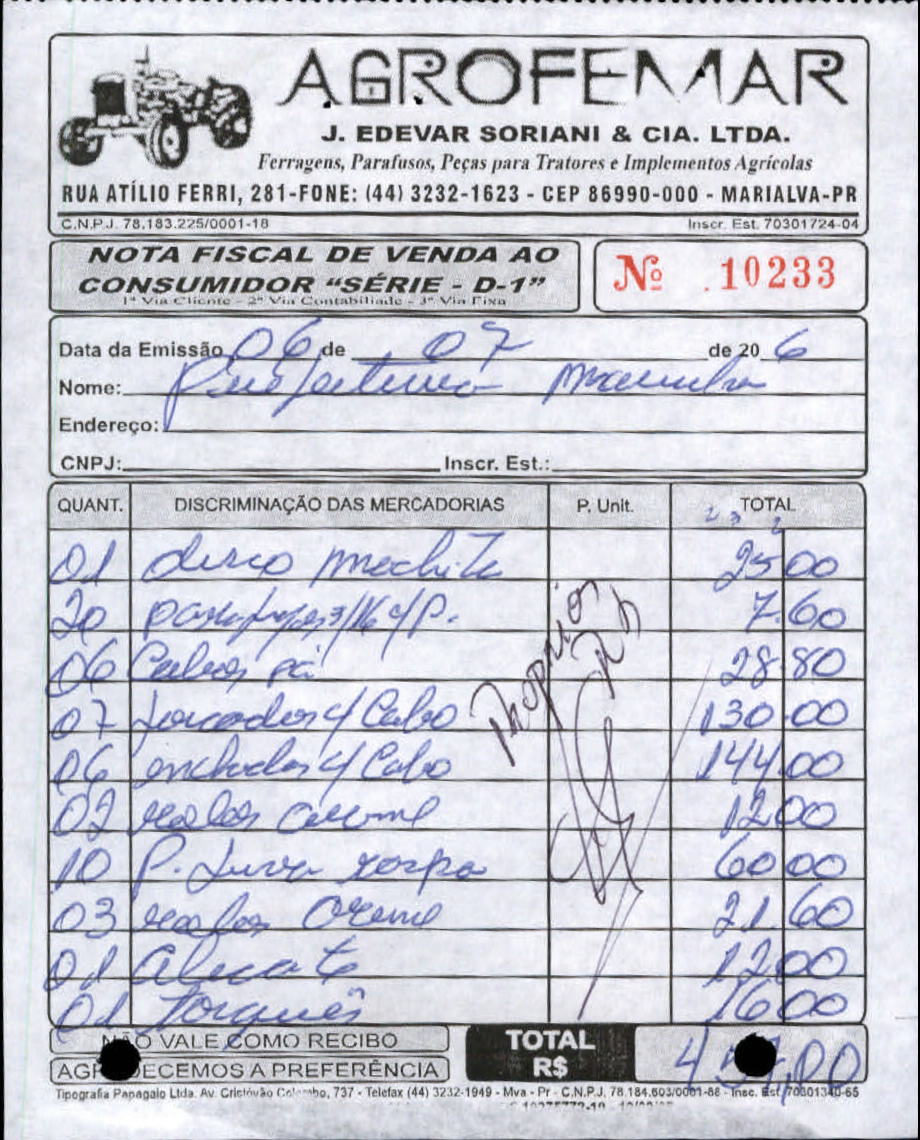 AGROFEMAR
J. EDEVAR SORIANI & CIA. LTDA.
Ferragens, Parafusos, Peças para Tratores e Implementos Agrícolas
RUA ATÍLIO FERRI, 281-FONE: (44) 3232-1623 - CEP 86990-000 - MARIALVA-PR
C.N.P.J. 78.183.225/0001-18 Inscr. Est. 70301724-04
NOTA FISCAL DE VENDA AO
CONSUMIDOR "SÉRIE - D-1"
1ª Via Cliente - 2ª Via Contabiliade - 3ª Via Fixa
Nº 10233
Data da Emissão 06 de 07 de 20 6
Nome: Prefeitura
Endereço:
CNPJ: Inscr. Est.:
QUANT. DISCRIMINAÇÃO DAS MERCADORIAS P. Unit. TOTAL
01 disco 25 00
20 3/16 c/P. 7.60
06 Cabos pá 28 80
07 c/ Cabo 130.00
06 enchadas c/ Cabo 144.00
02 12 00
10 P. Luva raspa 60 00
03 21.60
01 Alicate 12 00
01 Torquês 16 00
NÃO VALE COMO RECIBO
AGRADECEMOS A PREFERÊNCIA
TOTAL
R$
Tipografia Papagaio Ltda. Av. Cristóvão Colombo, 737 - Telefax (44) 3232-1949 - Mva - Pr - C.N.P.J. 78.184.603/0001-88 - Insc. Est. 70301340-65